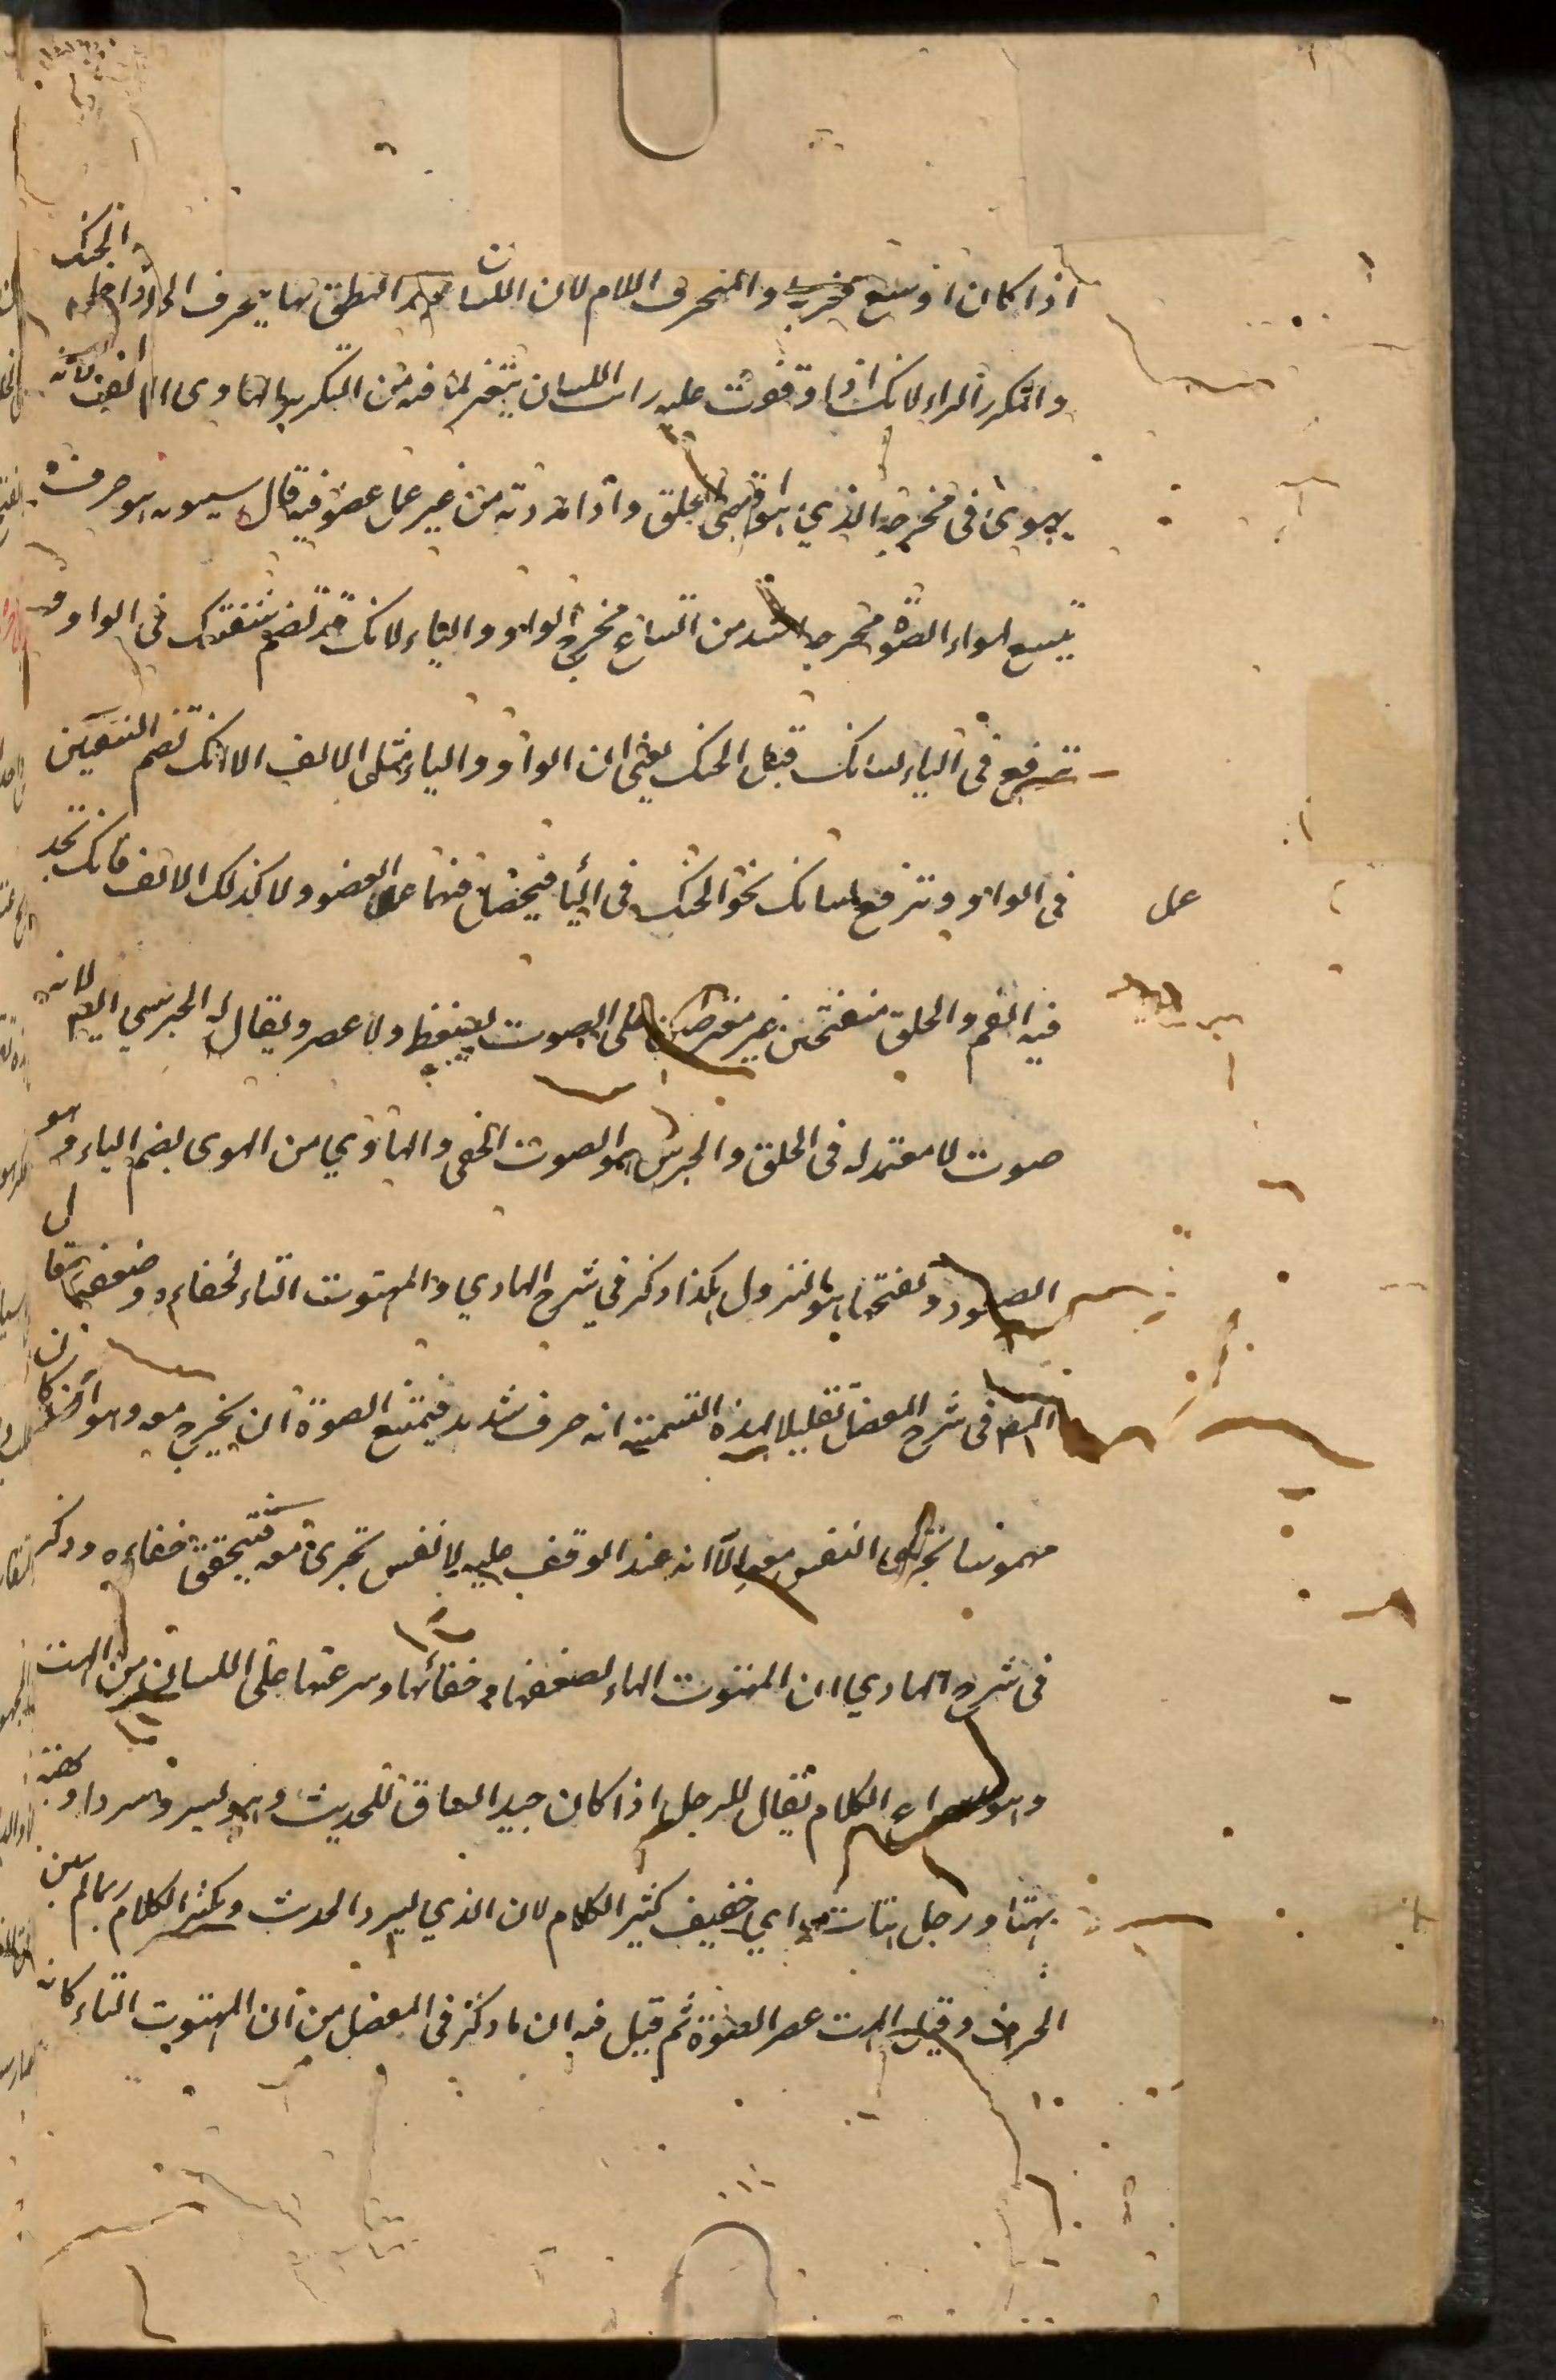 اذا كان اوسع مخرجه والمنحرف اللام لان اللسان عند النطق بها ينحرف الى داخل الحنك
والمكرر الراء لانك اذا وقفت عليه رايت اللسان يتعثر لما فيه من التكرير والهاوى الالف لانه
يهوى فى مخرجه الذي هو اقصى الحلق واذا مددته من غير عمل عضو فيه قال سيبويه هو حرف
يتسع لهواء الصوت مخرجه اشد من اتساع مخرج الواو والياء لانك قد تضم شفتيك فى الواو و
ترفع فى الياء لسانك قبل الحنك يعنى ان الواو والياء مثل الالف الا انك تضم الشفتين
فى الواو وترفع لسانك نحو الحنك فى اليا فيحصل فيهما عمل العضو ولا كذلك الالف فانك تجد
عمل
فيه الفم والحلق منفتحين غير معترضين على الصوت بضغط ولا عصر ويقال له الجرسي ايضا لانه
صوت لا معتمد له فى الحلق والجرس هو الصوت الخفى والهاوي من الهوى بضم الهاء وهو
الصعود وبفتحها هو النزول هكذا ذكر في شرح الهادي والمهتوت التاء لخفاءه وضعفه قال
المصـ فى شرح المفصل تعليلا لهذه التسمية انه حرف شديد فيمتنع الصوت ان يخرج معه وهو ان كان
مهموسا يجرى النفس معه الا انه عند الوقف عليه لا نفس تجرى معه فيتحقق خفاءه وذكر
فى شرح الهادي ان المهتوت الهاء لضعفها وخفائها وسرعتها على اللسان من الهت
وهو اسراع الكلام يقال للرجل اذا كان جيد السياق للحديث وهو يسرده سردا ويهته
هتا ورجل هتات اي خفيف كثير الكلام لان الذي يسرد الحديث ويكثر الكلام ربما لم يبين
الحرف وقيل الهت عصر الصوت ثم قيل فيه ان ما ذكر فى المفصل من ان المهتوت التاء كانه